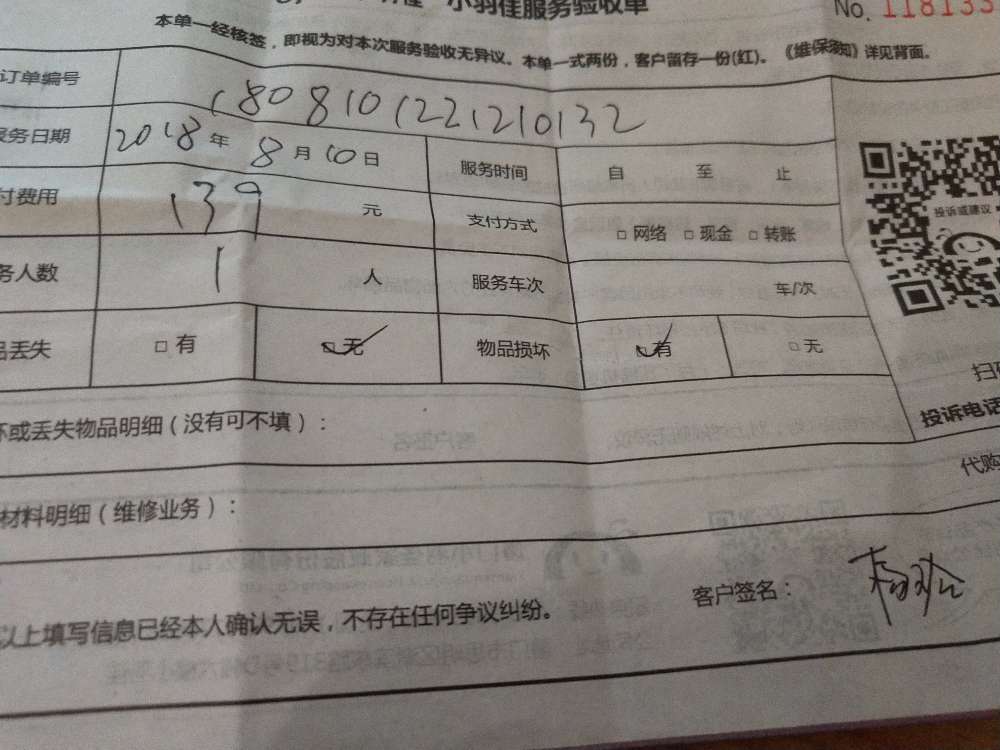 小羽佳服务验收单
No. 118133
本单一经核签，即视为对本次服务验收无异议。本单一式两份，客户留存一份(红)。《维保须知》详见背面。
订单编号 1808101221210132
服务日期 2018年 8月10日 服务时间 自 至 止
付费用 139 元 支付方式 □ 网络 □ 现金 □ 转账
务人数 1 人 服务车次 车/次
品丢失 □ 有 □ 无 物品损坏 □ 有 □ 无
投诉或建议
坏或丢失物品明细（没有可不填）：
扫
投诉电话
材料明细（维修业务）：
代购
以上填写信息已经本人确认无误，不存在任何争议纠纷。
客户签名：